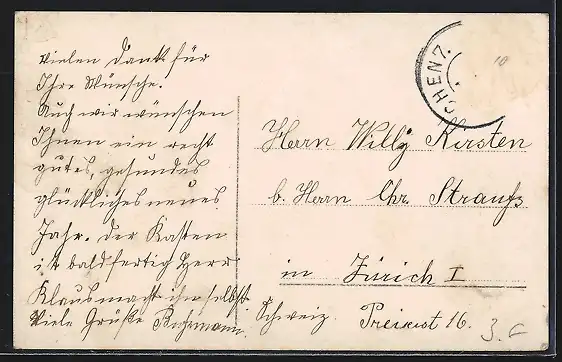 Vielen Dank für
Ihre Wünsche.
Auch wir wünschen
Ihnen ein recht
gutes, gesundes
glückliches neues
Jahr. Der Kasten
ist bald fertig Herr
Klaus macht ihn selbst
Viele Grüße
CHENZ.
10
Herrn Willy Kirsten
b. Herrn Chr. Strauß
in Zürich I
Schweiz. 16.